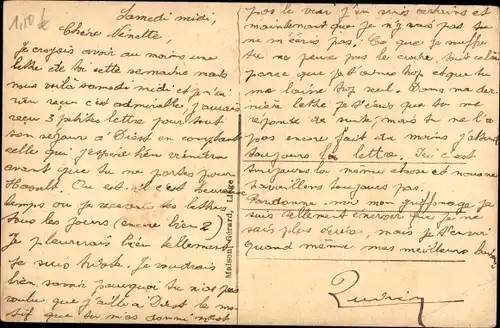 Samedi midi,
Chère Ninette,
Je croyais avoir au moins une
lettre de toi cette semaine mais
nous voilà samedi midi et je n'ai
rien reçu c'est admirable j'aurais
reçu 3 petites lettres pour tout
son séjour à Diest en comptant
celle qui j'espère bien viendra
avant que tu ne partes pour
Où est-il c'est
temps où je recevais les lettres
tous les jours (encore bien 2)
Je pleurerais bien tellement
je suis triste. Je voudrais
bien savoir pourquoi tu n'as pas
voulu que j'aille à Diest le mo-
tif que tu m'as donné n'est
pas le vrai j'en suis certain et
maintenant que je n'y vais pas tu
ne m'écris pas! Ce que je souffre
tu ne peux pas le croire, tout cela
parce que je t'aime trop et que tu
me laisse trop seul. Dans ma der-
nière lettre je t'avais que tu me
réponde de suite, mais tu ne l'a
pas encore fait du moins j'attend
toujours la lettre. Ici c'est
toujours la même chose et nous ne
travaillons toujours pas.
Pardonne-moi mon griffonage je
suis tellement énervé que je ne
sais plus écrire, mais je t'envoie
quand même mes meilleurs
Maison Gérard, Liége